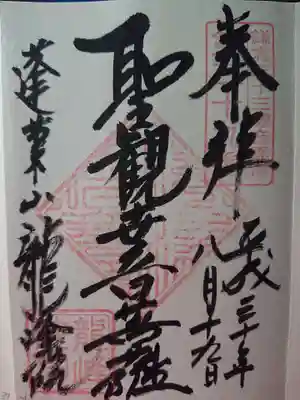 奉拝
平成三十年
八月十九日
聖観世音菩薩
蓬莱山龍峰院